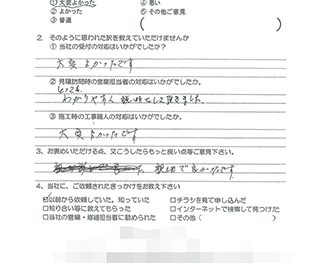 ①大変よかった ④悪い
②よかった ⑤その他ご意見
③普通 ( )
2. そのように思われた訳を教えていただけませんか
① 当社の受付の対応はいかがでしたか?
大変よかったです
② 見積訪問時の営業担当者の対応はいかがでしたか。
とても
わかりやすく説明をして頂きました。
③ 施工時の工事職人の対応はいかがでしたか?
大変よかったです
3. お褒めいただける点、又こうしたらもっと良い点等ご意見下さい。
親切で良かったです
4. 当社に、ご依頼されたきっかけをお教え下さい
☑以前から依頼していた。知っていた □チラシを見て申し込んだ
□知り合い等に教えてもらった □インターネットで検索して見つけた
□当社の営業・母結担当者に勧められた □その他( )